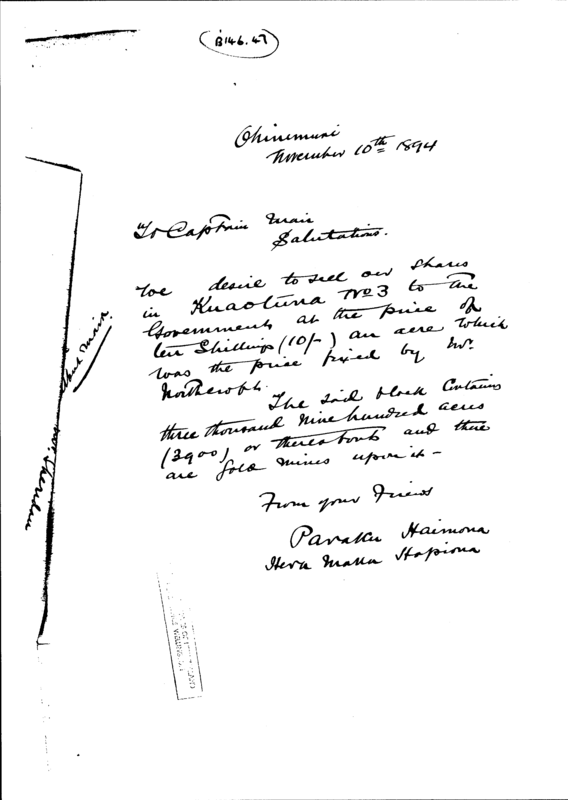 B146.47
Ohinemuri
November 10th 1894
To Captain Mair
Salutations.
We desire to sell our shares
in Kuaotunu No 3 to the
Government at the price of
ten Shillings (10/-) an acre which
was the price fixed by Mr.
Northcroft.
The said block Contains
three thousand nine hundred acres
(3900) or thereabouts and there
are gold mines upon it -
From your Friends
Paraku Haimona
Hera Haimona